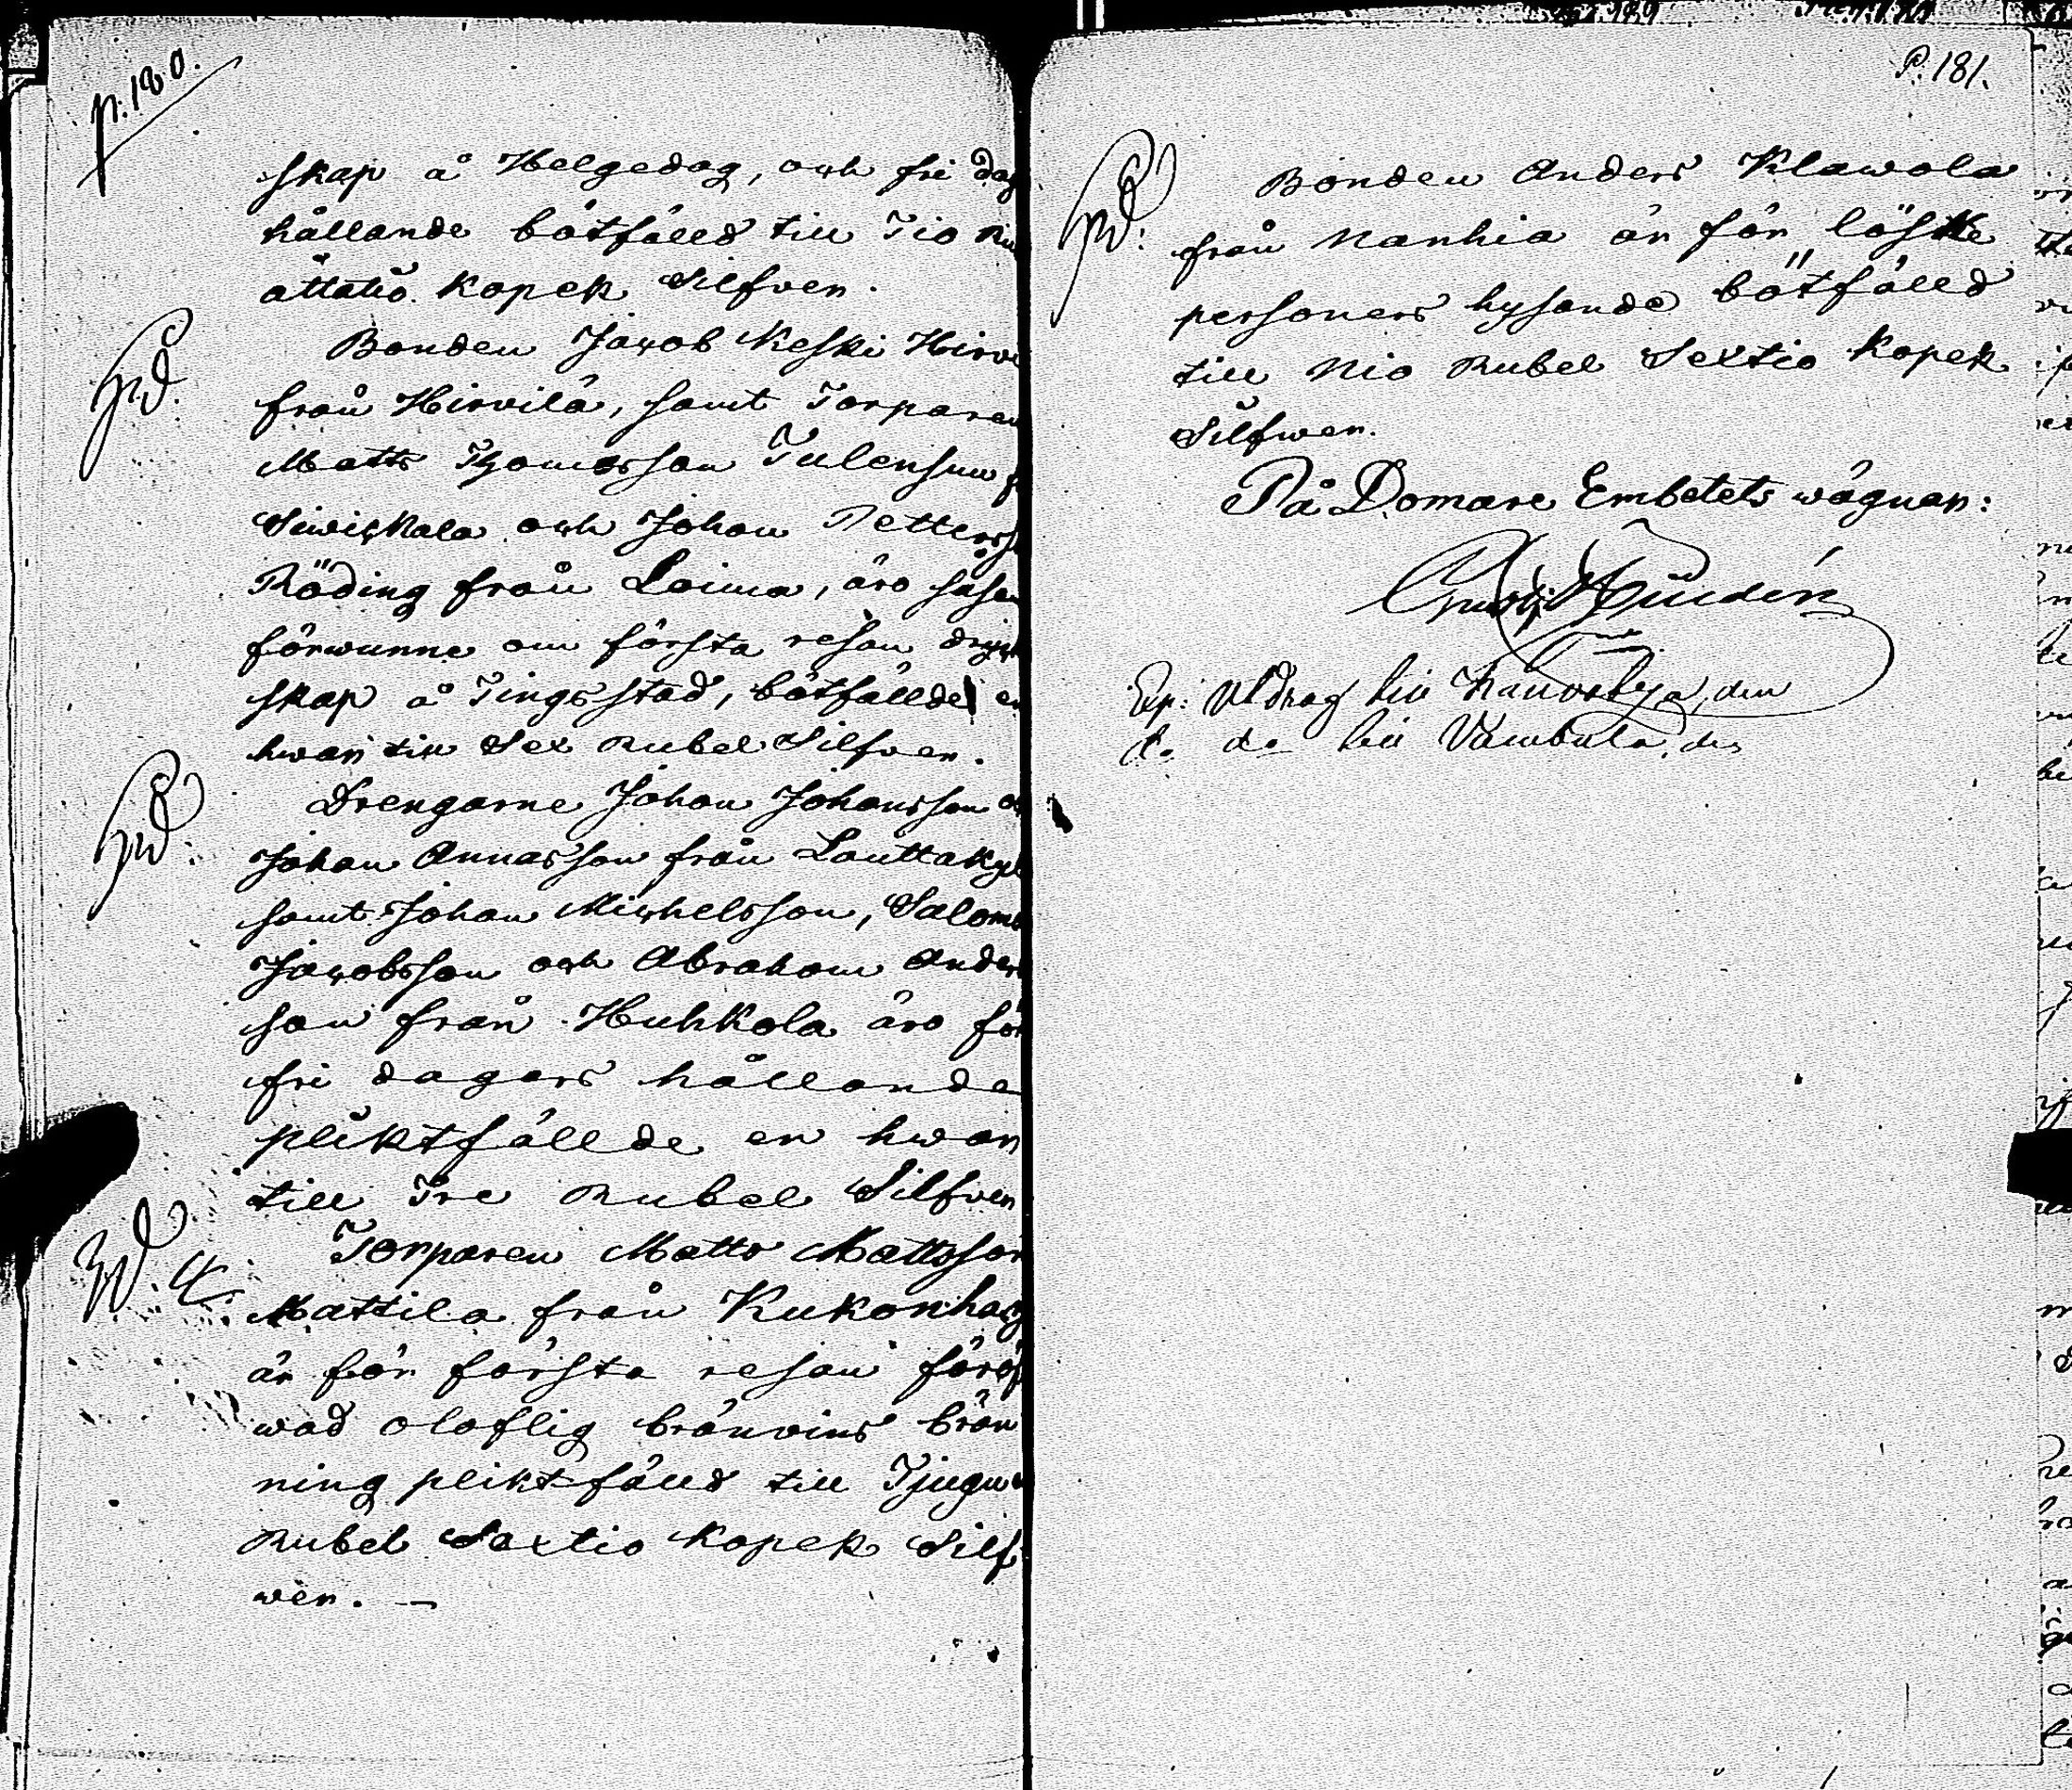 p. 180.
skap å Helgedag, och fri dag
hållande bötfälld till Tio Ru
åttatio kopek Silfver.
Bonden Jacob Keski Hirvi
från Hirvilä, samt Torparen
Matts Thomasson Tulensuu
Siwickala och Johan Petterss
Röding från Loima, äro
förwunne om första resan dryck
skap å Tingsstad, bötfällde en
hwar till Sex Rubel Silfver.
Drengarne Johan Johansson
Johan Annasson från Lauttakyl
samt Johan Michelsson, Salomo
Jacobsson och Abraham Anders
son från Huhkola äro för
fri dagars hållande
pliktfällde en hwar
till Tre Rubel Silfver
Torparen Matts Mattsson
Mattila från Kukonhar
är för första resan föröf
wad oloflig bränvins brän
ning pliktfälld till Tjugu
Rubel Sextio Kopek Silf
wer. —
P. 181.
Bonden Anders Klawola
från Nanhia är för löske
personers hysande bötfälld
till Nio Rubel Sextio Kopek
Silfwer.
På Domare Embetets wägnar:
Exp: Utdrag till Kauvatsa, den
do do till Vambula, den